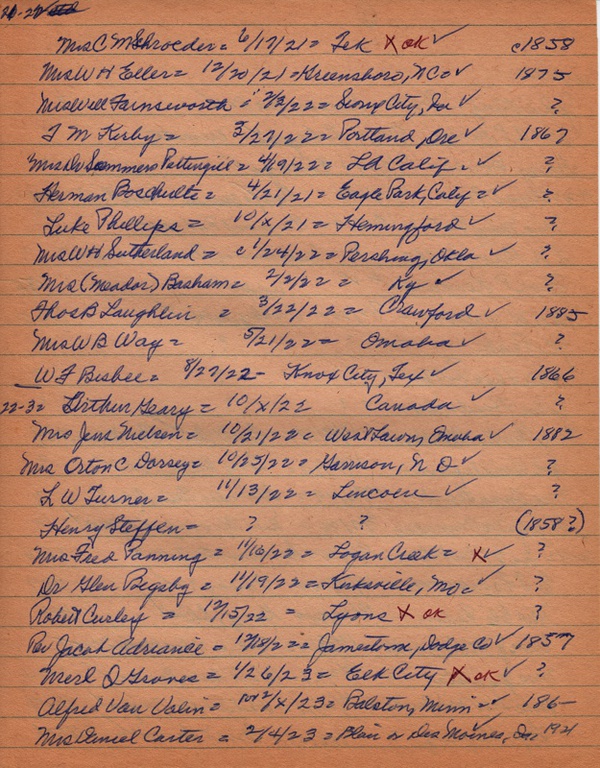 Mrs C M Schroeder = 6/17/21 = Tek X ok ✓ c1858
Mrs W H Eller = 12/20/21 = Greensboro, NC = ✓ 1875
Mrs Will Farnsworth = 2/2/22 = Sioux City, Ia ✓ ?
J M Kirby = 3/27/22 = Portland, Ore ✓ 1867
Mrs Dr Sommers Pettingill = 4/19/22 = LA Calif. ✓ ?
Herman Boschulte = 4/21/21 = Eagle Park, Calif = ✓ ?
Luke Phillips = 10/x/21 = Hemingford ✓ ?
Mrs W H Sutherland = c 1/24/22 = Pershing, Okla ✓ ?
Mrs (Meador) Basham = 2/2/22 = Ky ✓ ?
Thos B Laughlin = 3/22/22 = Crawford ✓ 1885
Mrs W B Way = 5/21/22 = Omaha ✓ ?
W F Bisbee = 8/27/22 - Knox City, Tex ✓ 1866
22-3 = Arthur Geary = 10/x/22 Canada ✓ ?
Mrs Jens Nielsen = 10/21/22 = West Lawn, Omaha ✓ 1882
Mrs Orton C Dorsey = 10/25/22 = Garrison, N D ✓ ?
L W Turner = 11/13/22 = Lincoln ✓ ?
Henry Steffen = ? ? (1858?)
Mrs Fred Panning = 11/16/22 = Logan Creek = X ✓ ?
Dr Glen Bigsby = 11/19/22 = Kirksville, Mo = ✓ ?
Robert Curley = 12/15/22 = Lyons X ok ?
Rev Jacob Adriance = 12/18/22 = Jamestown, Dodge Co ✓ 1857
Merl D Graves = 1/26/23 = Elk City X ok ✓ ?
Alfred Van Valin = 2/x/23 = Balston, Minn = ✓ 186-
Mrs Daniel Carter = 2/4/23 = Blair or Des Moines, Ia